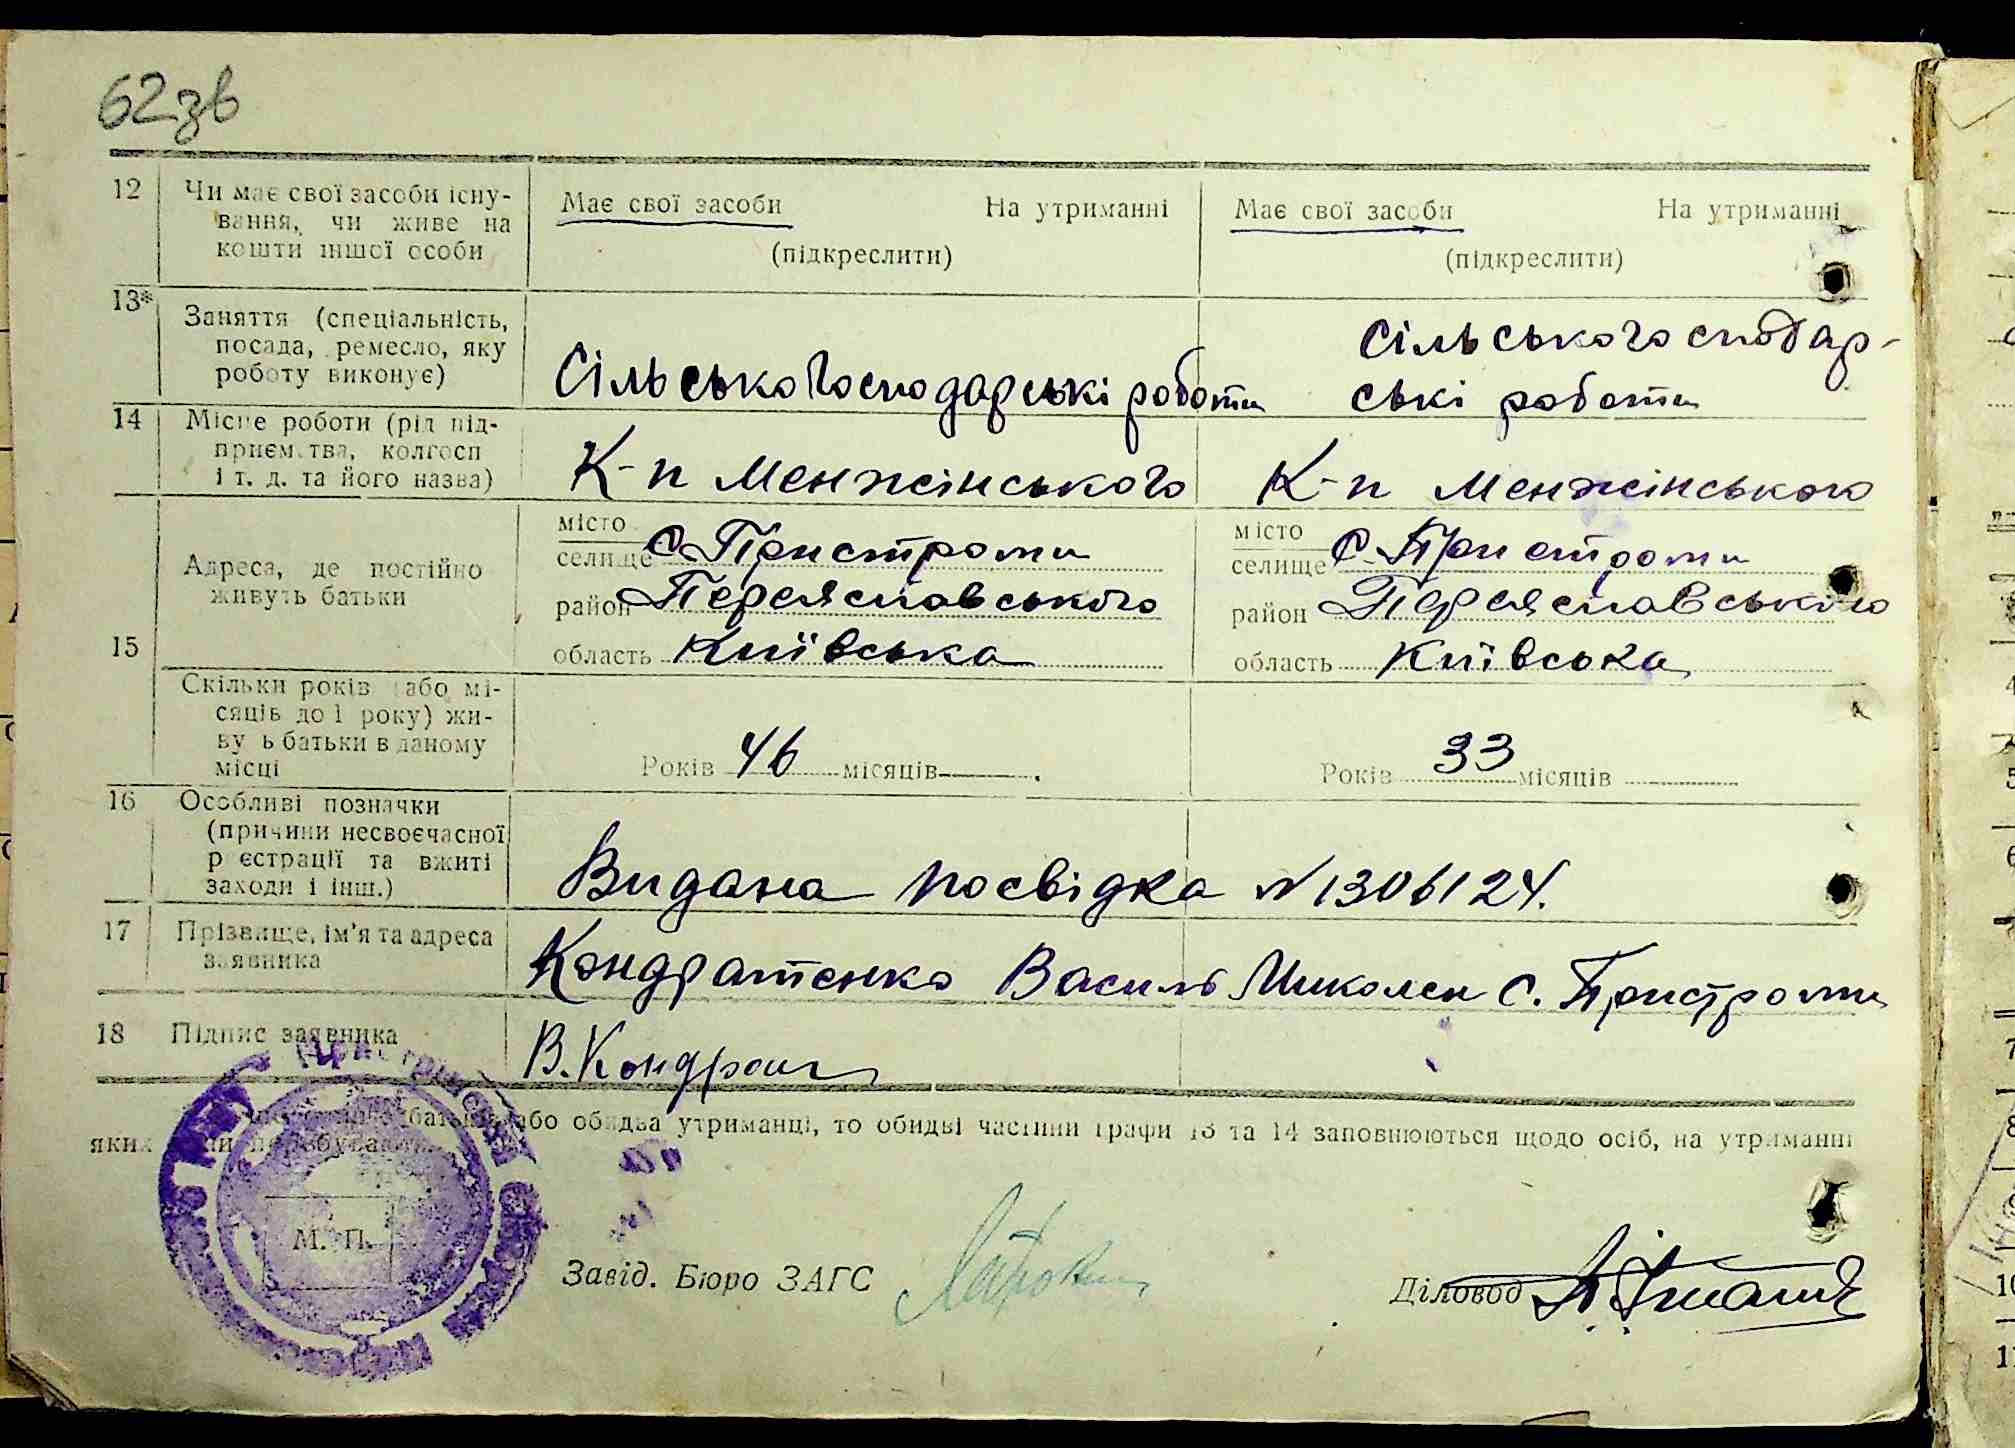 62зв
12 Чи має свої засоби існу-
вання, чи живе на
кошти іншої особи
Має свої засоби На утриманні
(підкреслити)
Має свої засоби На утриманні
(підкреслити)
13* Заняття (спеціальність,
посада, ремесло, яку
роботу виконує)
Сільськогосподарські роботи
Сільськогосподар-
ські роботи
14 Місце роботи (рід під-
приємства, колгосп
і т. д. та його назва)
К-п Менжінського
К-п Менжінського
15 Адреса, де постійно
живуть батьки
місто
селище с. Пристроми
район Переяславського
область Київська
місто
селище с. Пристроми
район Переяславського
область Київська
Скільки років (або мі-
сяців до 1 року) жи-
вуть батьки в даному
місці
Років 46 місяців
Років 33 місяців
16 Особливі позначки
(причини несвоєчасної
реєстрації та вжиті
заходи і інш.)
Видана посвідка №1306124.
17 Прізвище, ім'я та адреса
заявника
Кондратенко Василь Миколен с. Пристроми
18 Підпис заявника
В. Кондрат
батьків або обидва утриманці, то обидві частини графи 13 та 14 заповнюються щодо осіб, на утриманні
яких вони перебувають.
М. П.
Завід. Бюро ЗАГС
Діловод